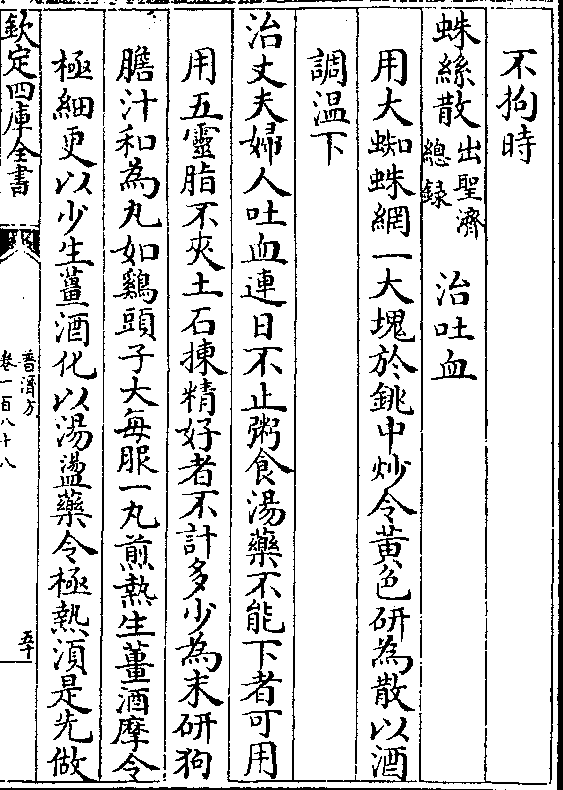 不拘時
蛛絲散出聖濟總録　治吐血
用大蜘蛛網一大塊於銚中炒令黄色研為散以酒
調温下
治丈夫婦人吐血連日不止粥食湯藥不能下者可用
用五靈脂不夾土石揀精好者不計多少為末研狗
膽汁和為丸如鷄頭子大每服一丸煎熱生薑酒摩令
極細更以少生薑酒化以湯盪藥令極熱湏是先做
欽定四庫全書
普濟方
卷一百八十八